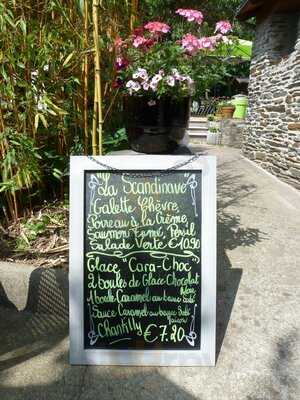 La Scandinave
Galette Chèvre,
Poireau à la Crème
Saumon Fumé, Persil
Salade Verte €10.90
Glace "Cara-Choc"
2 boules de Glace Chocolat
Noire
1 boule Caramel au beurre Salé
Sauce Caramel au beurre Salé
Chantilly €7.20